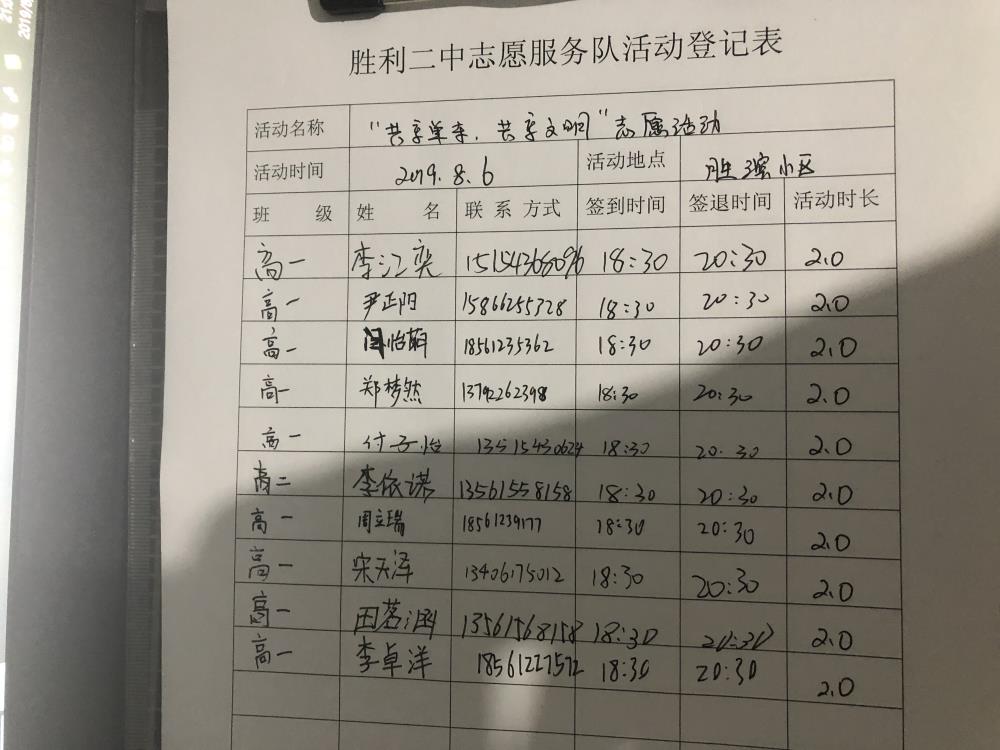 胜利二中志愿服务队活动登记表
活动名称 "共享单车，共享文明"志愿活动
活动时间 2019.8.6 活动地点 胜滨小区
班 级 姓 名 联系方式 签到时间 签退时间 活动时长
高一 李江奕 15154368096 18:30 20:30 2.0
高一 尹正阳 15866255328 18:30 20:30 2.0
高一 闫怡萌 18561235362 18:30 20:30 2.0
高一 郑梦然 13792262398 18:30 20:30 2.0
高一 付子怡 13515430624 18:30 20:30 2.0
高二 李依诺 13561558158 18:30 20:30 2.0
高一 周立瑞 18561239177 18:30 20:30 2.0
高一 宋天泽 13406175012 18:30 20:30 2.0
高一 田茗涵 13561568158 18:30 20:30 2.0
高一 李卓洋 18561227572 18:30 20:30 2.0